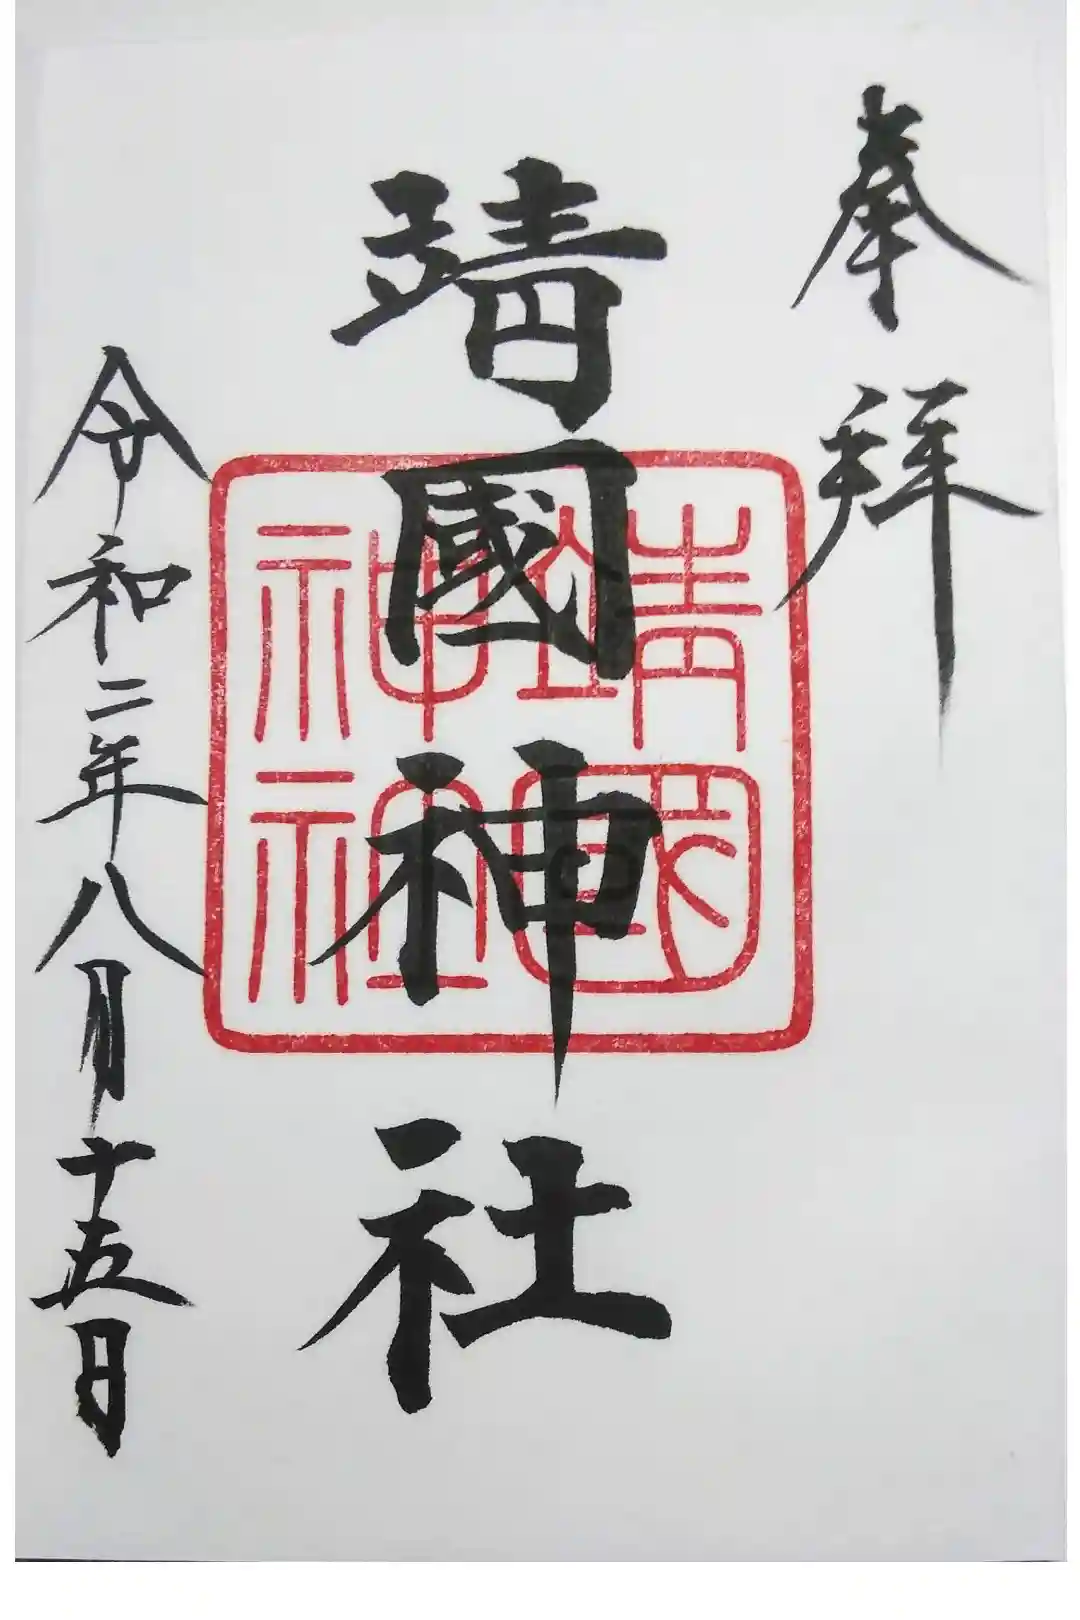 奉拝
靖國神社
靖國神社
令和二年八月十五日